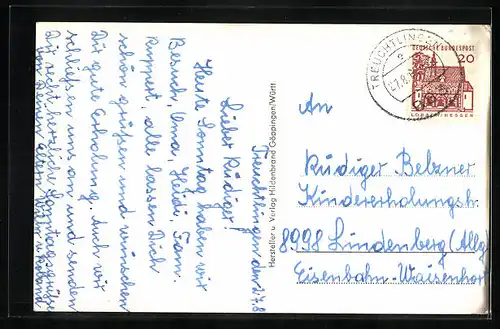 Treuchtlingen, den 27.8.
Lieber Rüdiger!
Heute Sonntag haben wir
Besuch, Oma, Heidi, Fam.
Ruppert, alle lassen Dich
schön grüßen und wünschen
Dir gute Erholung. Auch wir
schließen uns an und senden
Dir recht herzliche Sonntagsgrüße
von Deinen Eltern und
Hersteller u. Verlag Hildenbrand Göppingen/Württ
TREUCHTLINGEN
DEUTSCHE BUNDESPOST
20
LORSCH/HESSEN
An
Rüdiger Belzner
Kindererholungsh.
8998 Lindenberg (Allg)
Eisenbahn-Waisenhort